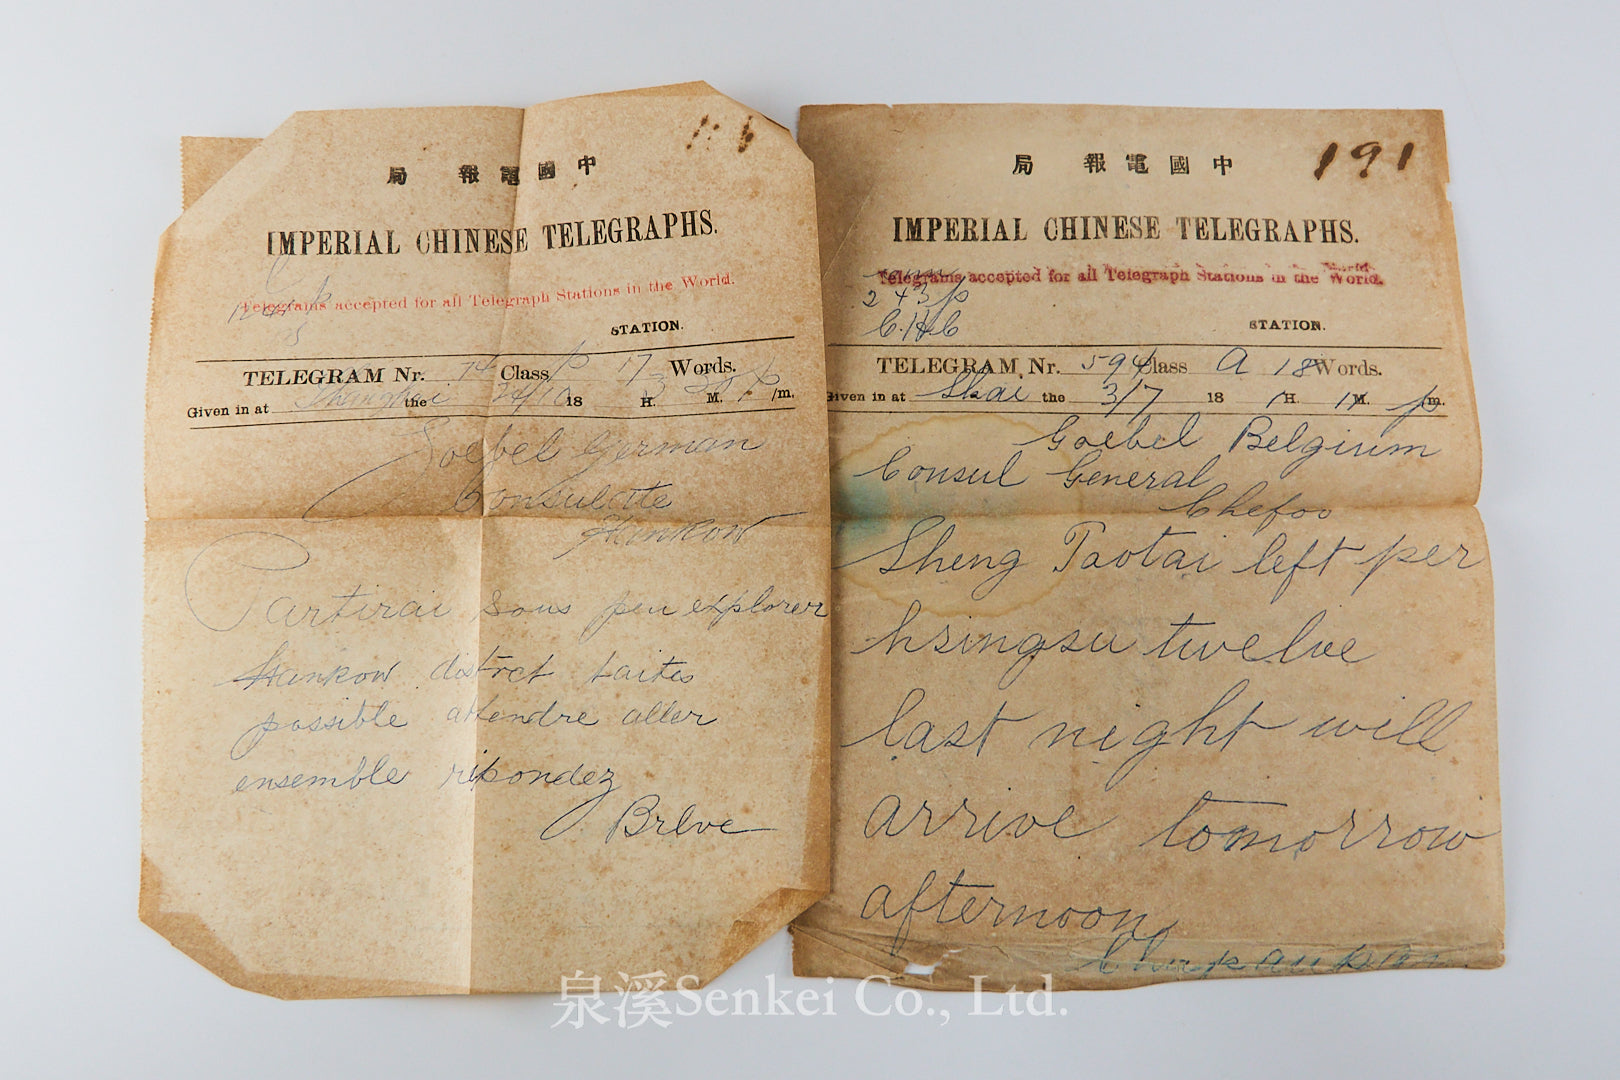 局 報電國中
IMPERIAL CHINESE TELEGRAPHS.
Telegrams accepted for all Telegraph Stations in the World.
STATION.
TELEGRAM Nr. 74 Class p 17 Words.
Given in at Shanghai the 24/10 18 H. 3 M. p/m.
Goebel German
Consulate
Hankow
Partirai sous peu explorer
Hankow district faites
possible attendre aller
ensemble repondez
局 報電國中
191
IMPERIAL CHINESE TELEGRAPHS.
Telegrams accepted for all Telegraph Stations in the World.
243p
C.H.C
STATION.
TELEGRAM Nr. 594 Class A 18 Words.
Given in at Shai the 3/7 18 1 H. 11 M. p m.
Goebel Belgium
Consul General
Chefoo
Sheng Taotai left per
hsingsu twelve
last night will
arrive tomorrow
afternoon
泉溪Senkei Co., Ltd.